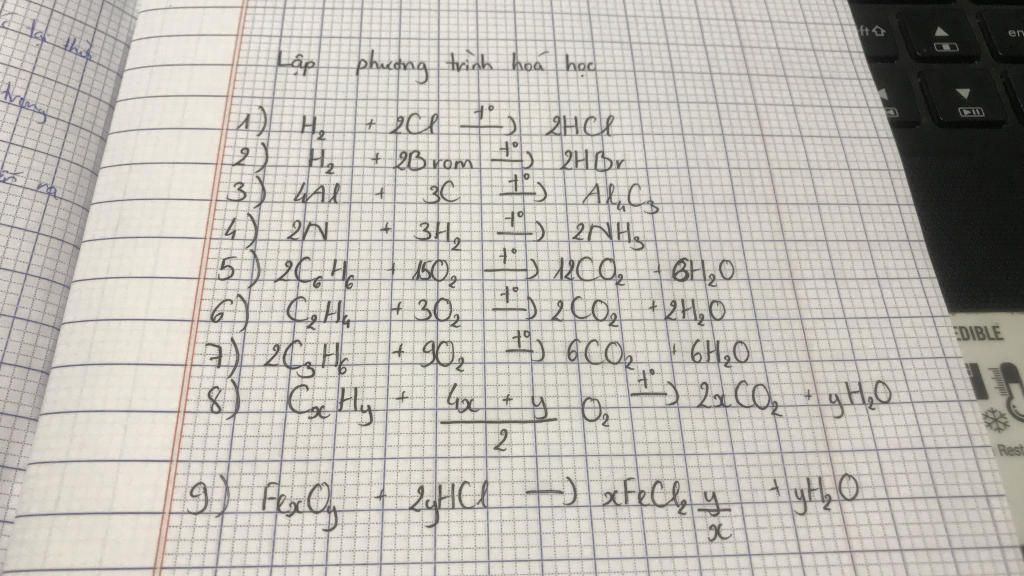 Lập phương trình hoá học
1) H₂ + 2Cl —t°→ 2HCl
2) H₂ + 2Brom —t°→ 2HBr
3) 4Al + 3C —t°→ Al₄C₃
4) 2N + 3H₂ —t°→ 2NH₃
5) 2C₆H₆ + 15O₂ —t°→ 12CO₂ + 6H₂O
6) C₂H₄ + 3O₂ —t°→ 2CO₂ + 2H₂O
7) 2C₃H₆ + 9O₂ —t°→ 6CO₂ + 6H₂O
8) CₓHy + (4x + y)/2 O₂ —t°→ 2xCO₂ + yH₂O
9) FeₓOy + 2yHCl —→ xFeCl₂ y/x + yH₂O
EDIBLE
Rest